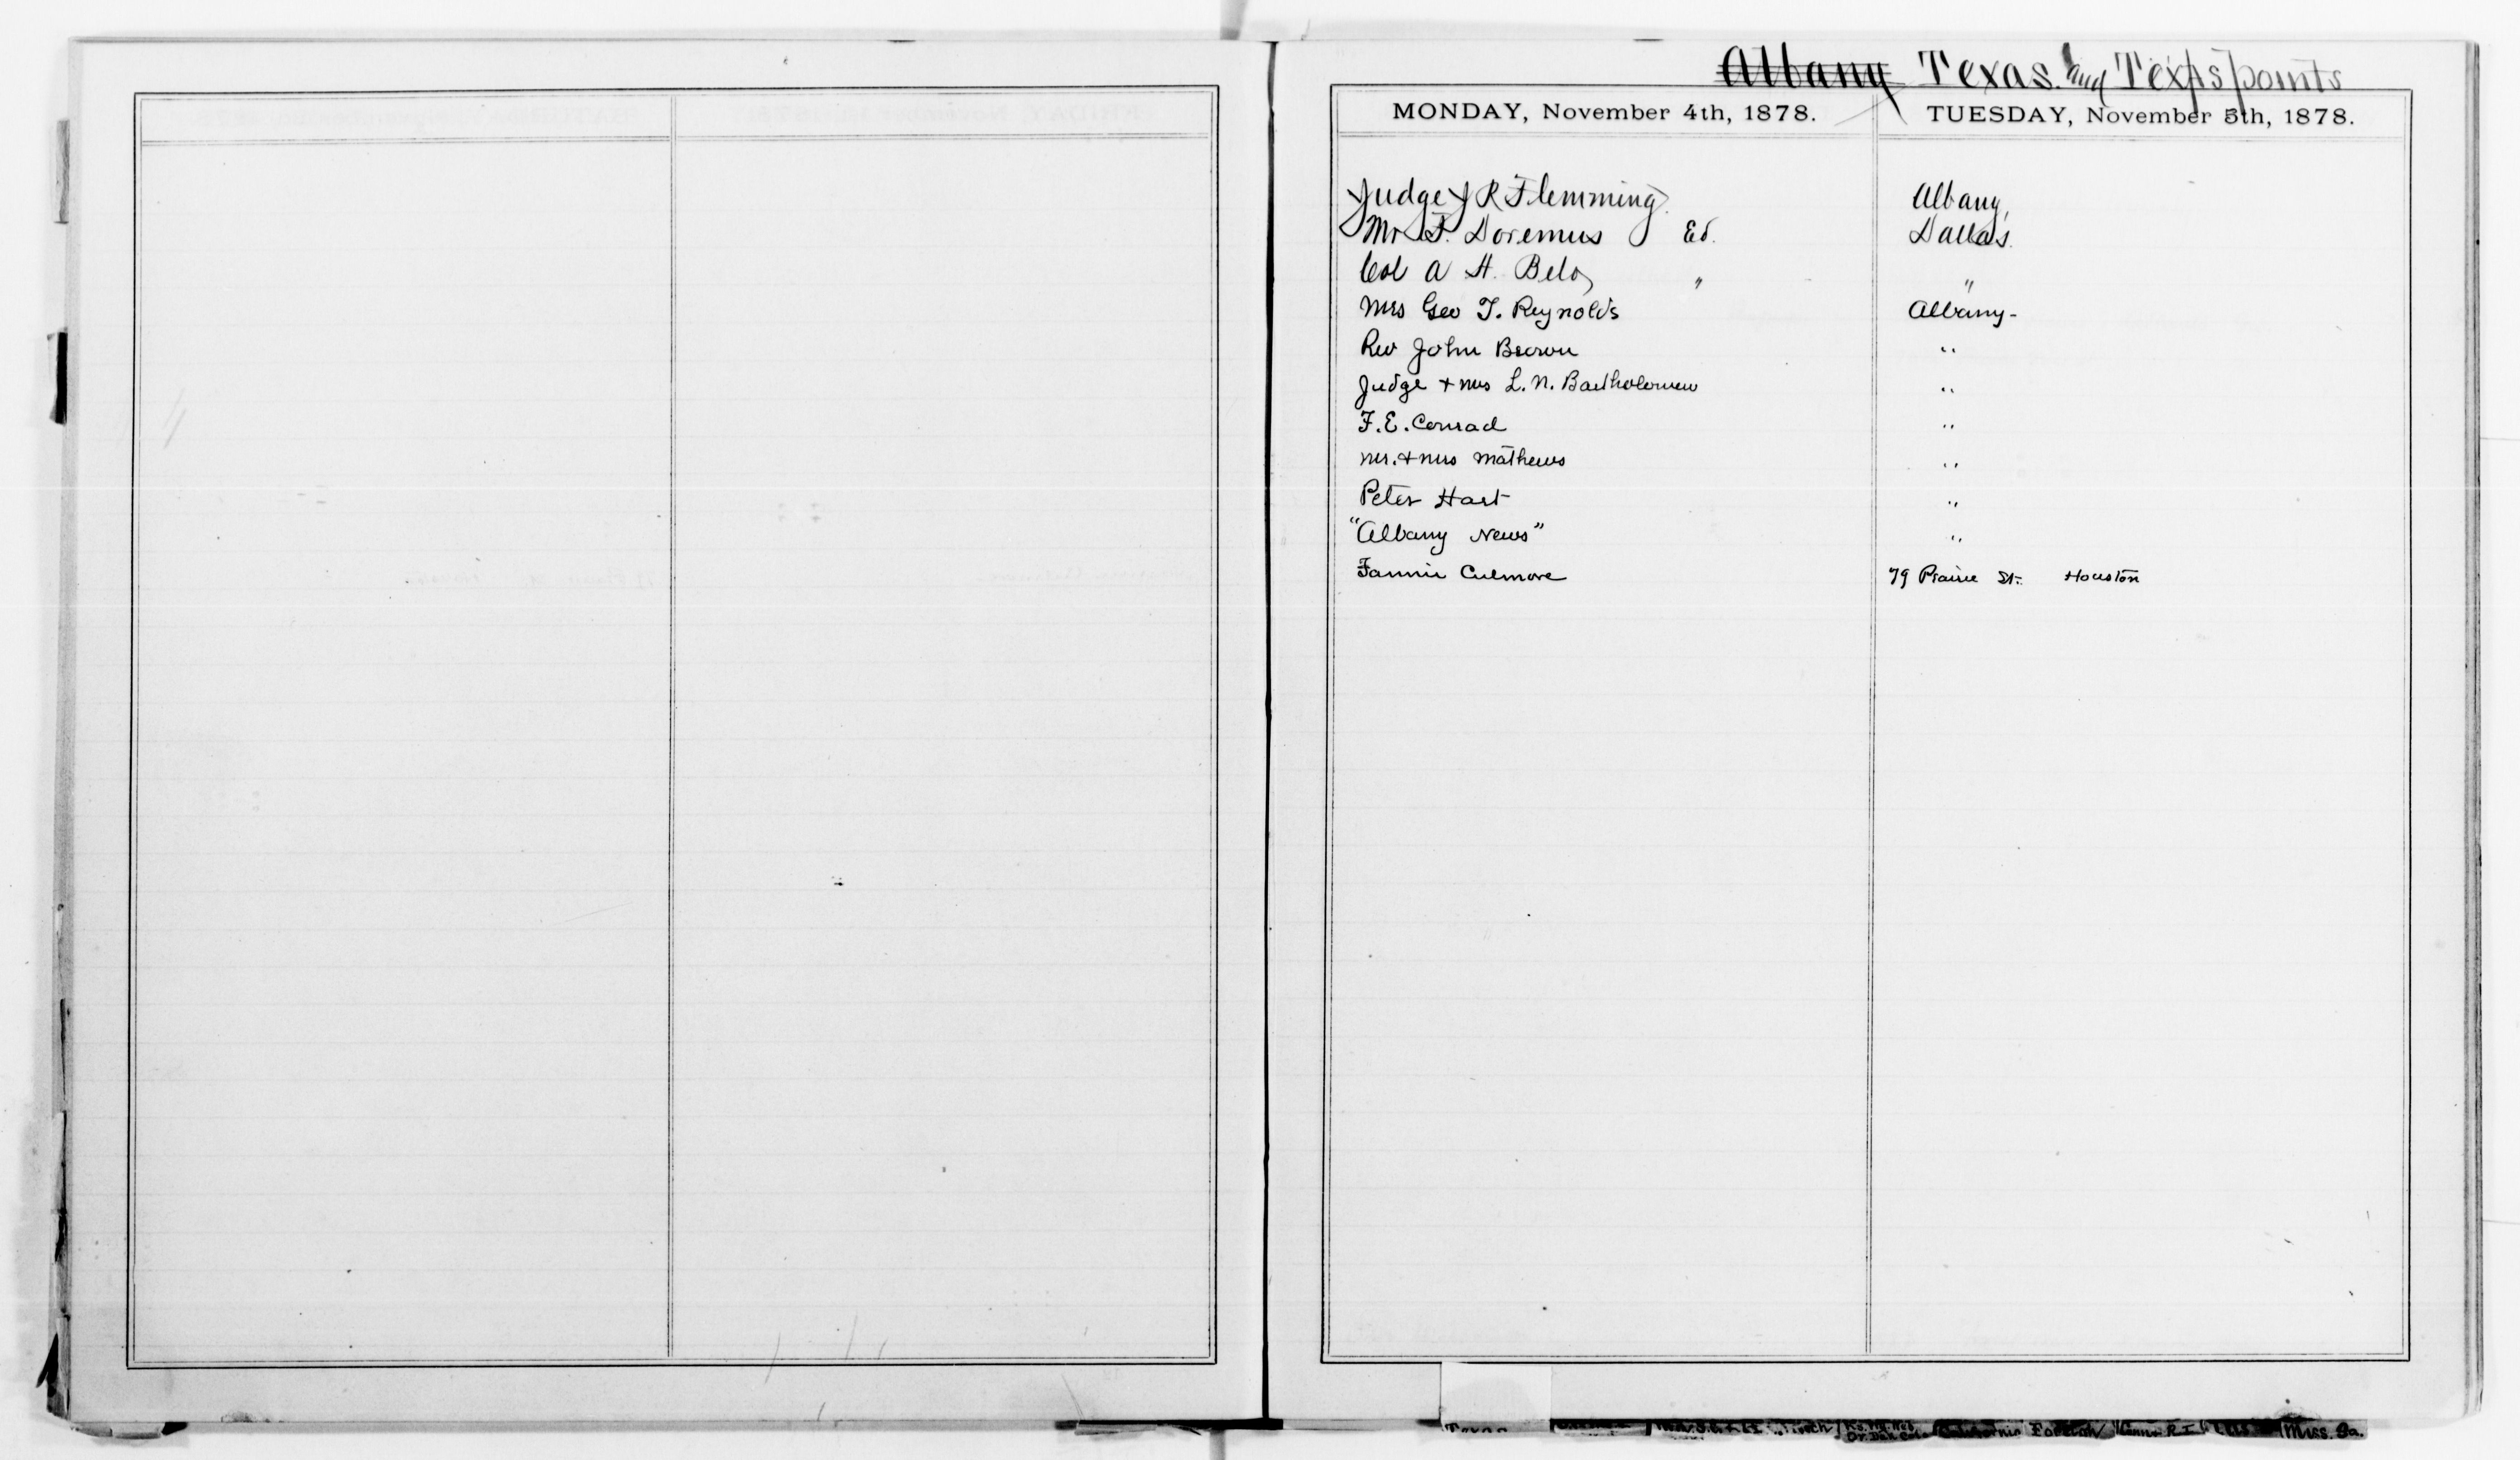 Albany Texas. and Texas points
MONDAY, November 4th, 1878. TUESDAY, November 5th, 1878.
Judge J R Flemming. Albany,
Mr F. Doremus Ed. Dallas.
Col A H. Belo, " "
Mrs Geo T. Reynolds Albany-
Rev John Brown "
Judge + Mrs L. N. Bartholomew "
F. E. Conrad "
Mr. + Mrs Mathews "
Peter Hart "
"Albany News" "
Fannie Culmore 79 Prairie St. Houston
Texas Foreign Miss. Ga.